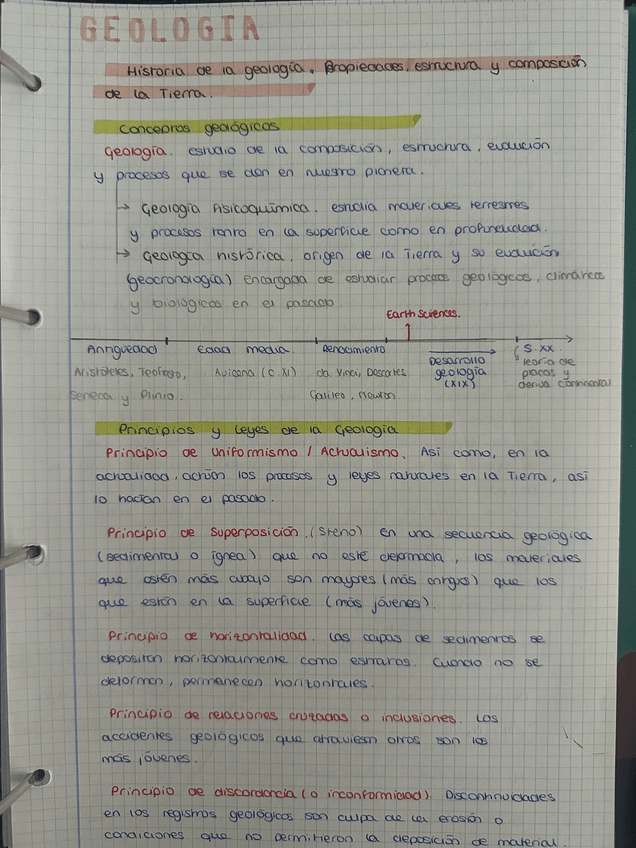 GEOLOGIA
Historia de la geología. Propiedades, estructura y composición
de la Tierra.
Conceptos geológicos
Geología. estudio de la composición, estructura, evolución
y procesos que se dan en nuestro planeta.
→ Geología fisicoquímica. estudia materiales terrestres
y procesos tanto en la superficie como en profundidad.
→ Geología histórica. origen de la Tierra y su evolución
(geocronología) encargada de estudiar procesos geológicos, climáticos
y biológicos en el pasado
Earth Sciences.
Antigüedad Edad media. Renacimiento Desarrollo geología (XIX) S. XX.
Aristóteles, Teofrasto, Avicena (C. XI) da Vinci, Descartes teoría de placas y
Séneca y Plinio. Galileo, Newton deriva continental
Principios y Leyes de la Geología
Principio de uniformismo / Actualismo. Así como, en la
actualidad, actúan los procesos y leyes naturales en la Tierra, así
lo hacían en el pasado.
Principio de superposición. (Steno) en una secuencia geológica
(sedimental o ígnea) que no esté deformada, los materiales
que estén más abajo son mayores (más antiguos) que los
que están en la superficie (más jóvenes).
Principio de horizontalidad. Las capas de sedimentos se
depositan horizontalmente como estratos. Cuando no se
deforman, permanecen horizontales.
Principio de relaciones cruzadas o inclusiones. Los
accidentes geológicos que atraviesan otros son los
más jóvenes.
Principio de discordancia (o inconformidad). Discontinuidades
en los registros geológicos son culpa de la erosión o
condiciones que no permitieron la deposición de material.